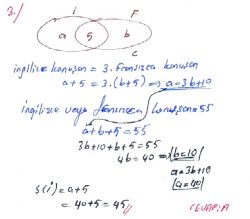 3./
i F
a 5 b
C
ingilizce konuşan = 3. Fransızca konuşan
a+5 = 3.(b+5) ⟹ a=3b+10
ingilizce veya fransızca konuşan=55
a+b+5=55
3b+10+b+5=55
4b=40 ⟹ b=10
a=3b+10
a=40
s(i)=a+5
=40+5=45//
CEVAP:A